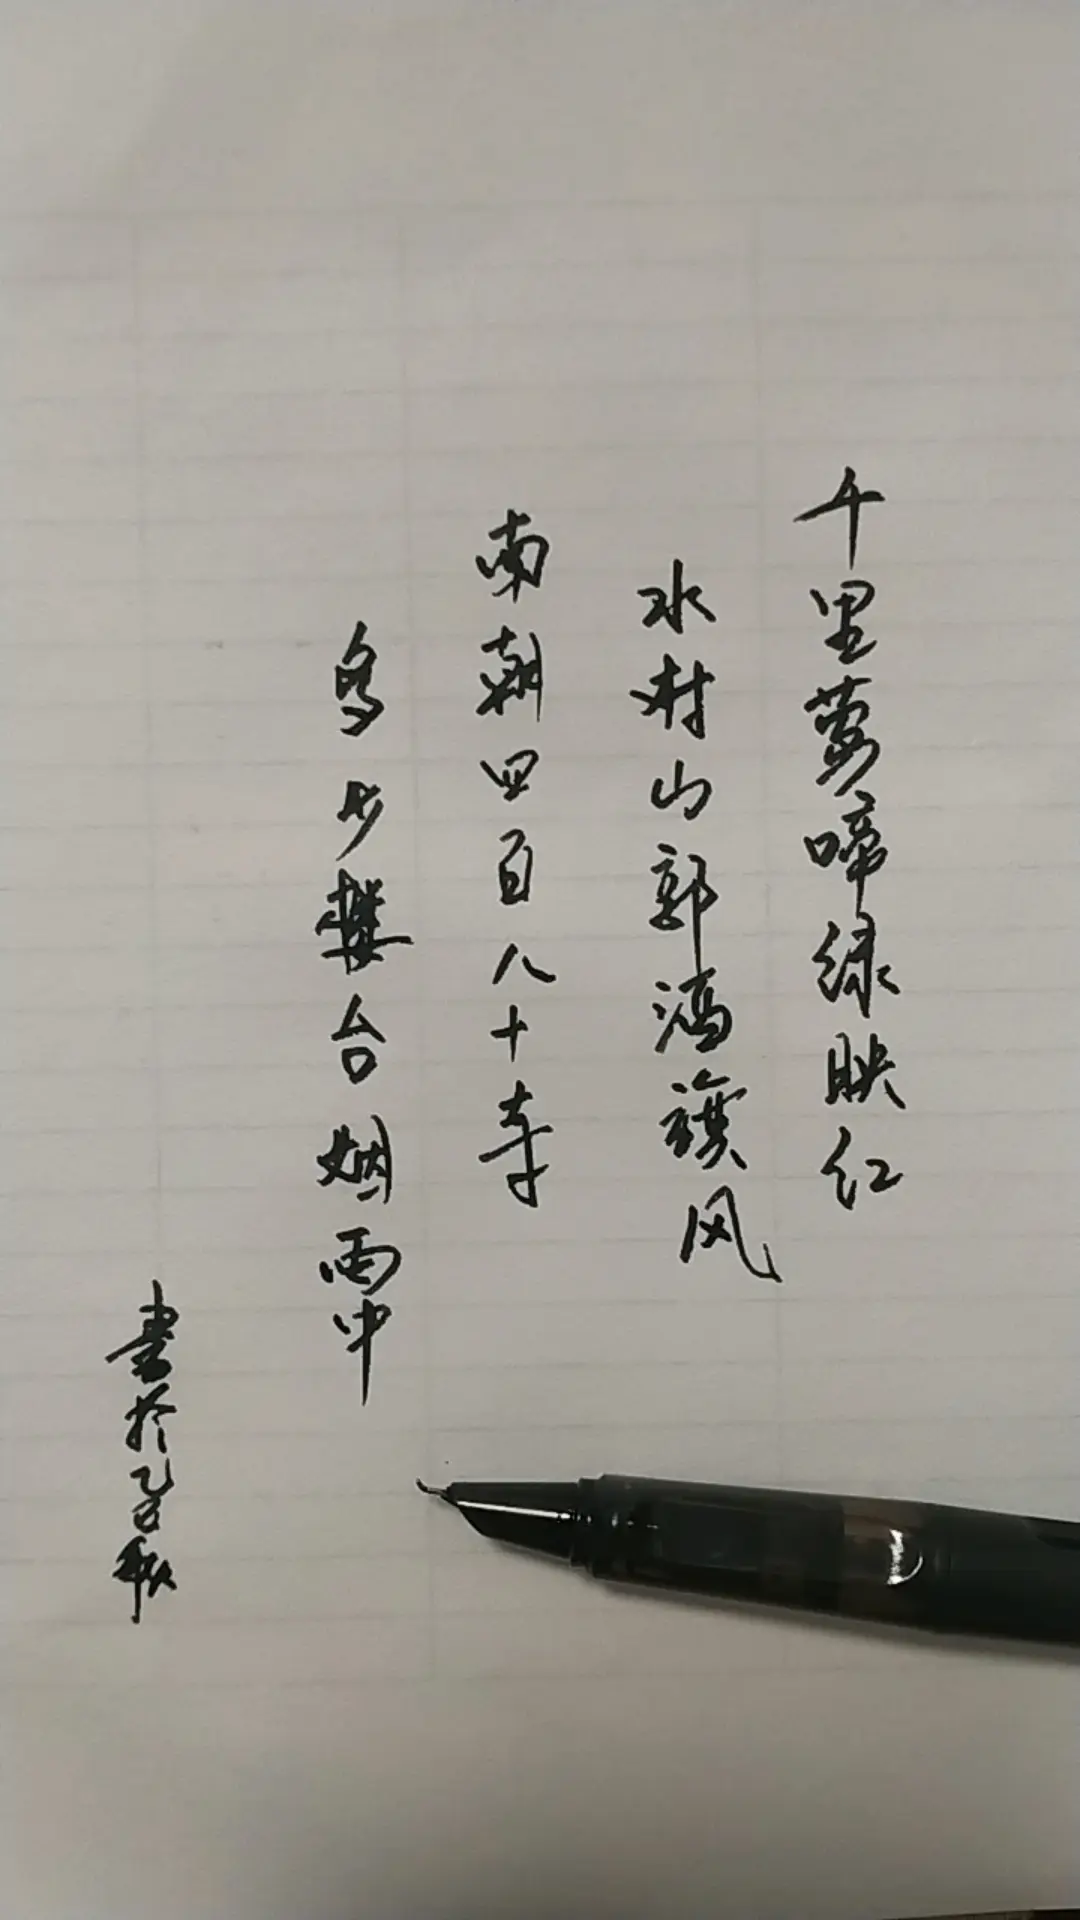 千里莺啼绿映红
水村山郭酒旗风
南朝四百八十寺
多少楼台烟雨中
書於乙巳秋